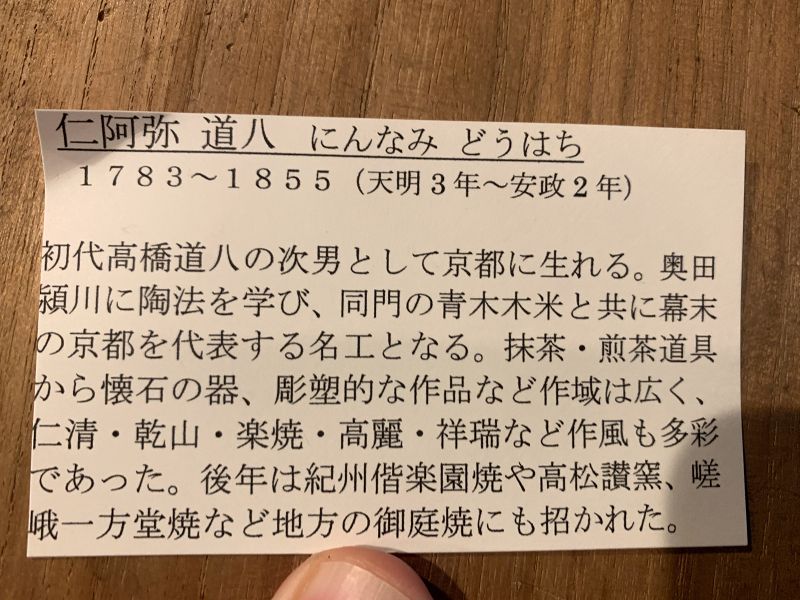 仁阿弥 道八 にんなみ どうはち
１７８３～１８５５（天明３年～安政２年）
初代高橋道八の次男として京都に生れる。奥田
頴川に陶法を学び、同門の青木木米と共に幕末
の京都を代表する名工となる。抹茶・煎茶道具
から懐石の器、彫塑的な作品など作域は広く、
仁清・乾山・楽焼・高麗・祥瑞など作風も多彩
であった。後年は紀州偕楽園焼や高松讃窯、嵯
峨一方堂焼など地方の御庭焼にも招かれた。